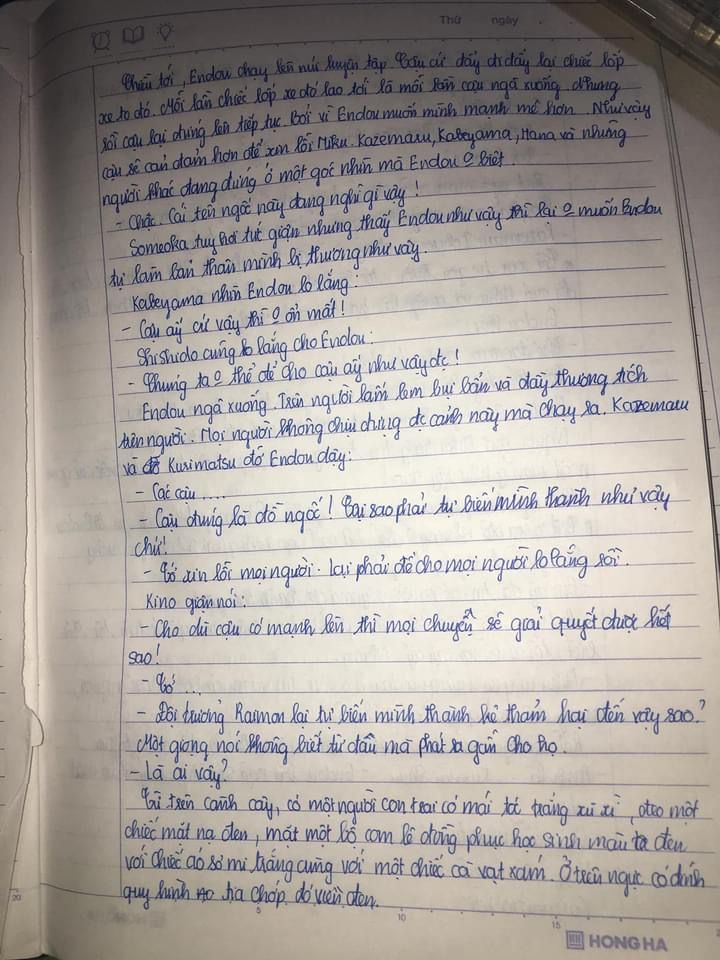 Thứ ngày
Chiều tối, Endou chạy lên núi luyện tập. Cậu cứ đẩy đi đẩy lại chiếc lốp
xe to đó. Mỗi lần chiếc lốp xe đó lao tới là mỗi lần cậu ngã xuống. Nhưng
rồi cậu lại đứng lên tiếp tục. Bởi vì Endou muốn mình mạnh mẽ hơn. Như vậy
cậu sẽ can đảm hơn để xin lỗi Miku. Kazemaru, Kabeyama, Hana và những
người khác đang đứng ở một góc nhìn mà Endou o biết
- Chậc. Cái tên ngốc này đang nghĩ gì vậy!
Someoka tuy hơi tức giận nhưng thấy Endou như vậy thì lại o muốn Endou
tự làm bản thân mình bị thương như vậy.
Kabeyama nhìn Endou lo lắng:
- Cậu ấy cứ vậy thì o ổn mất!
Shishido cũng lo lắng cho Endou:
- Chúng ta o thể để cho cậu ấy như vậy đc!
Endou ngã xuống. Trên người lấm lem bụi bẩn và đầy thương tích
trên người. Mọi người không chịu đựng đc cảnh này mà chạy ra. Kazemaru
và Kurimatsu đỡ Endou dậy:
- Các cậu ....
- Cậu đúng là đồ ngốc! Tại sao phải tự biến mình thành như vậy
chứ!
- Tớ xin lỗi mọi người. Lại phải để cho mọi người lo lắng rồi.
Kino giận nói:
- Cho dù cậu có mạnh lên thì mọi chuyện sẽ giải quyết được hết
sao!
- Tớ ...
- Đội trưởng Raimon lại tự biến mình thành kẻ thảm hại đến vậy sao?
Một giọng nói không biết từ đâu mà phát ra gần chỗ họ.
- Là ai vậy?
Từ trên cành cây, có một người con trai có mái tóc trắng xù xì, đeo một
chiếc mặt nạ đen, mặt một bộ com lê đồng phục học sinh màu đen
với chiếc áo sơ mi trắng cùng với một chiếc cà vạt xám. Ở trên ngực có đính
quy hình tia chớp đỏ viền đen.
5 10 15
20
HONG HA